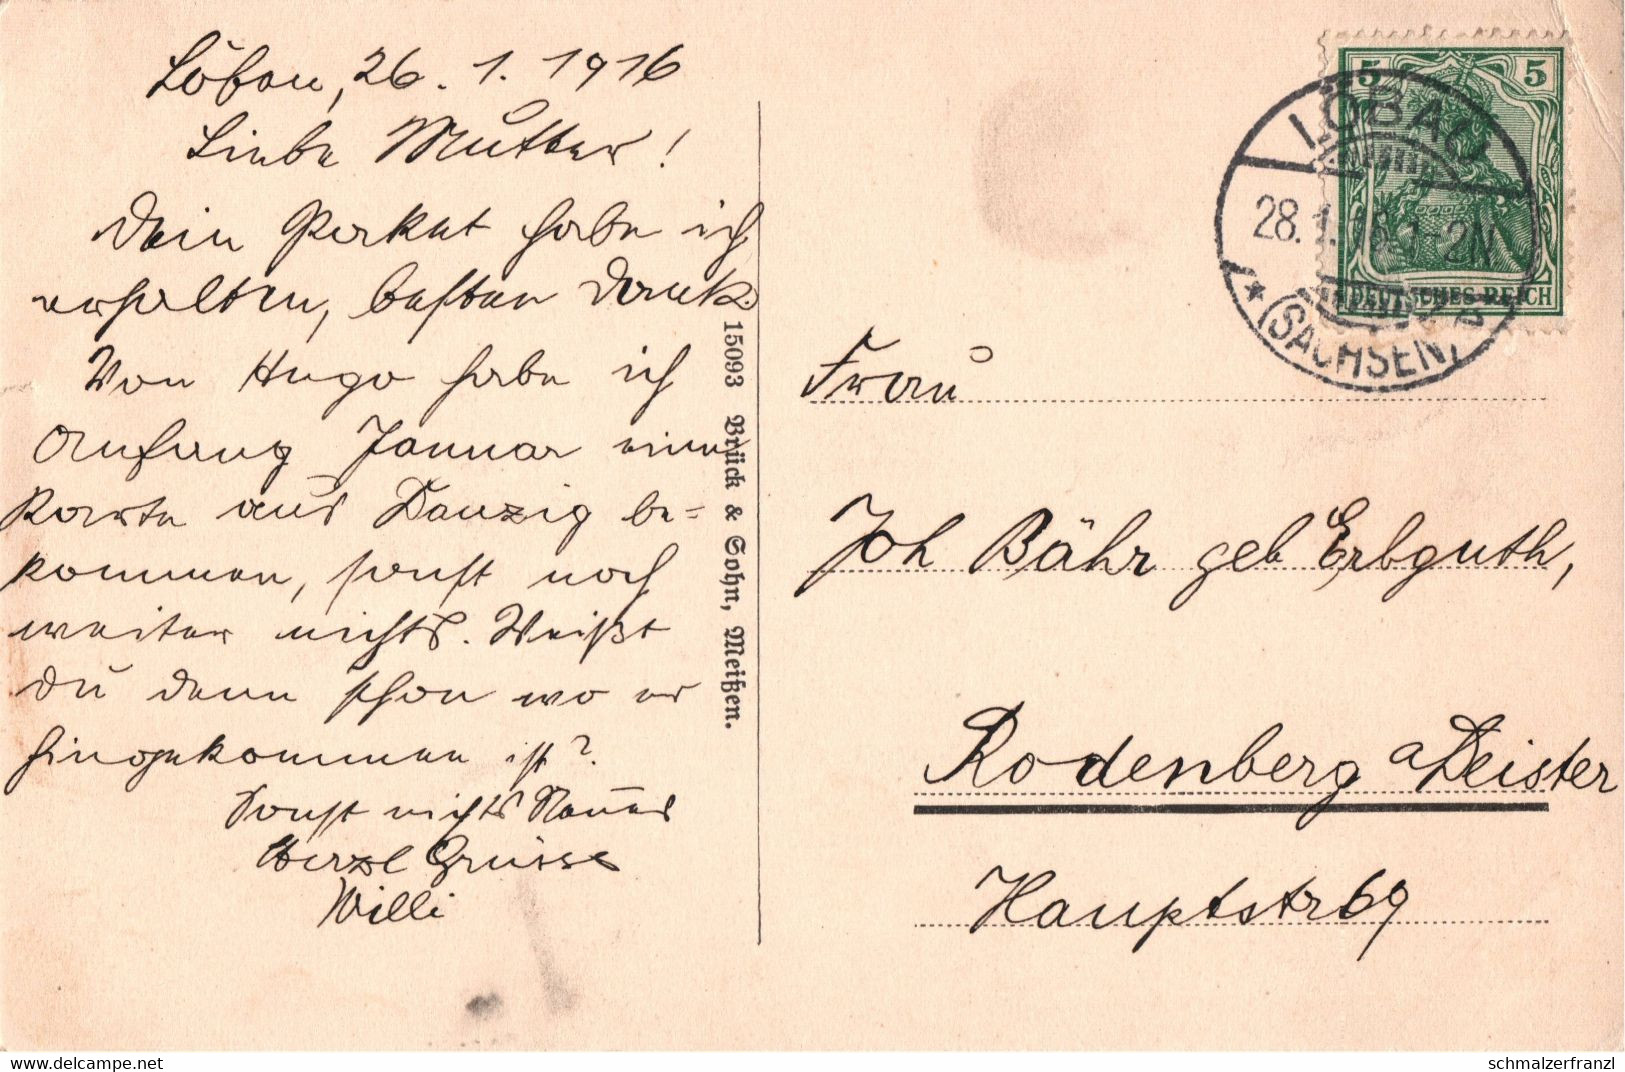 Löbau, 26. 1. 1916
Liebe Mutter!
Dein Packet habe ich
erhalten, besten Dank.
Von Hugo habe ich
Anfang Januar eine
Karte aus Danzig be=
kommen, sonst noch
weiter nichts. Weißt
du denn schon wo er
hingekommen ist?
Sonst nichts Neues
Herzl Grüsse
Willi
15093 Brück & Sohn, Meißen.
5 5
DEUTSCHES REICH
LÖBAU
28.1.16.1-2N
(SACHSEN)
Frau
Joh Bähr geb Erbguth,
Rodenberg a Deister
Hauptstr 69
www.delcampe.net
schmalzerfranzl